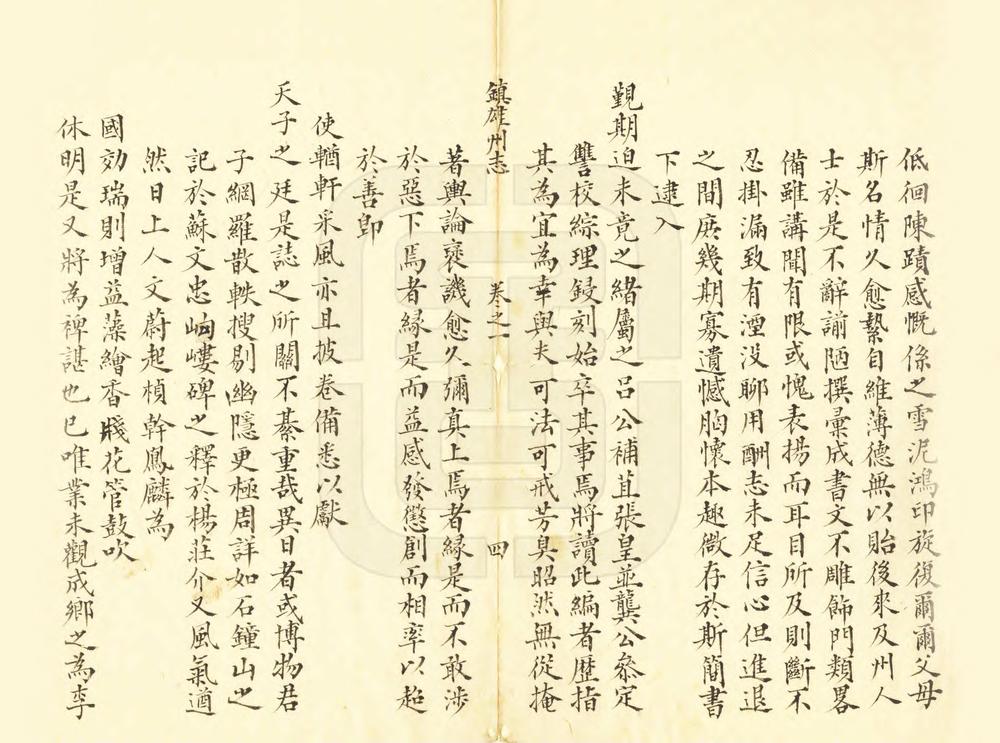 低徊陳蹟感慨係之雪泥鴻印旋復爾爾父母
斯名情久愈縶自維薄德無以貽後來及州人
士於是不辭謭陋撰彙成書文不雕飾門類畧
備雖講聞有限或愧表揚而耳目所及則斷不
忍掛漏致有湮没聊用酬志未足信心但進退
之間庶幾期寡遺憾胸懷本趣微存於斯簡書
下逮入
覲期迫未竟之緒屬之吕公補苴張皇並龔公叅定
讐校綜理鋟刻始卒其事焉將讀此編者歴指
其為宜為幸與夫可法可戒芳臭昭然無從掩
鎮雄州志 卷之一 四
著輿論褒譏愈久彌真上焉者緣是而不敢涉
於惡下焉者緣是而益感發懲創而相率以趨
於善卽
使輶軒采風亦且披卷備悉以獻
天子之廷是誌之所關不綦重哉異日者或博物君
子網羅散軼搜剔幽隱更極周詳如石鐘山之
記於蘇文忠岣嶁碑之釋於楊莊介又風氣遒
然日上人文蔚起楨幹鳳麟為
國効瑞則增益藻繪香牋花管鼓吹
休明是又將為裨諶也已唯業未觀成鄉之為李